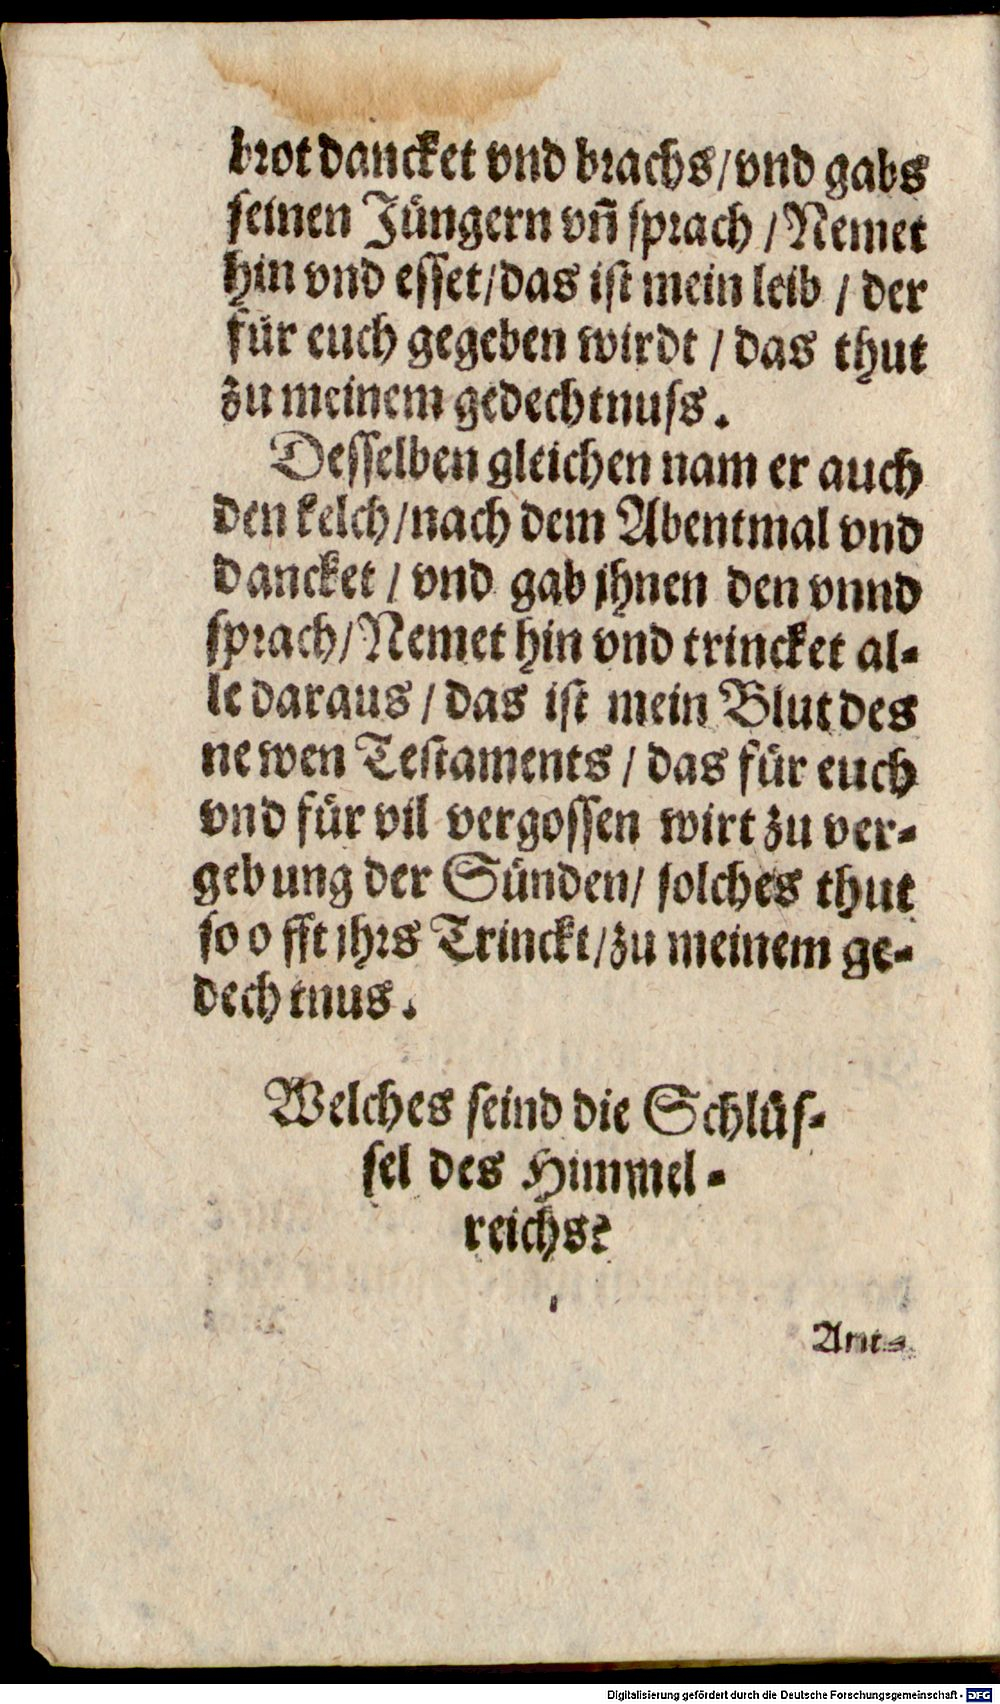 brot dancket vnd brachs/vnd gabs
seinen Jüngern vñ sprach / Nemet
hin vnd esset/das ist mein leib / der
für euch gegeben wirdt / das thut
zu meinem gedechtnuss.
Desselben gleichen nam er auch
den kelch/nach dem Abentmal vnd
dancket / vnd gab jhnen den vnnd
sprach/Nemet hin vnd trincket al-
le daraus / das ist mein Blut des
newen Testaments / das für euch
vnd für vil vergossen wirt zu ver-
gebung der Sünden/ solches thut
so offt jhrs Trinckt/zu meinem ge-
dechtnus.
Welches seind die Schlüs-
sel des Himmel-
reichs?
Ant-
Digitalisierung gefördert durch die Deutsche Forschungsgemeinschaft - DFG